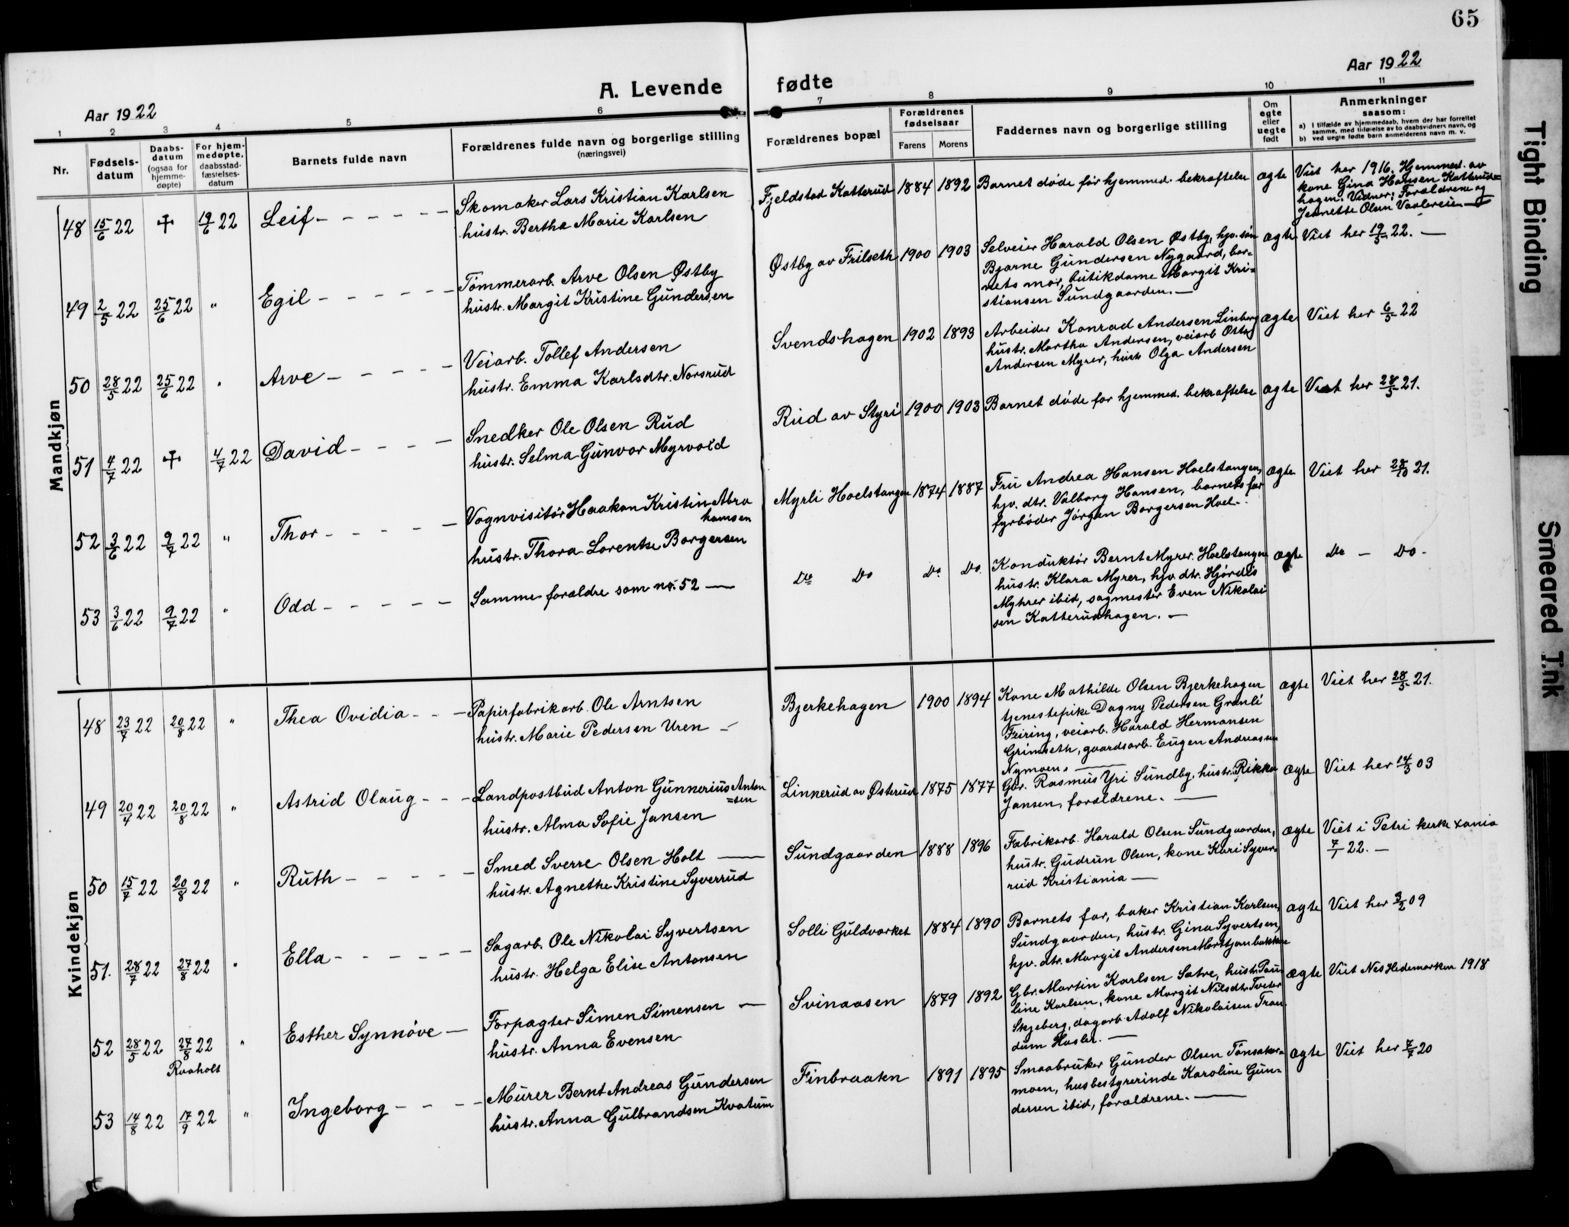 65
A. Levende fødte
Aar 1922
Aar 1922
1 2 3 4 5 6 7 8 9 10 11
Nr.
Fødsels-
datum
Daabs-
datum
(ogsaa for
hjemme-
døpte)
For hjem-
medøpte,
daabsstad-
fæstelses-
datum
Barnets fulde navn
Forældrenes fulde navn og borgerlige stilling
(næringsvei)
Forældrenes bopæl
Forældrenes
fødselsaar
Farens Morens
Faddernes navn og borgerlige stilling
Om
ægte
eller
uegte
født
Anmerkninger
saasom:
a) I tilfælde av hjemmedaab, hvem der har forrettet
samme, med tilføielse av to daabsvidners navn, og
b) ved uegte fødte barn anmelderens navn m. v.
Mandkjøn
48 15/6 22 ✝ 19/6 22 Leif
Skomaker Lars Kristian Karlsen
hustr. Bertha Marie Karlsen
Fjeldstad Katterud 1884 1892 Barnet døde før hjemmed. bekræftelse ægte
Viet her 1916. Hjemmed. av
kone Gina Hansen Katterud=
hagen. Vidner: Forældrene og
Jeanette Olsen
49 2/5 22 25/6 22 " Egil
Tømmerarb. Arve Olsen Østby
hustr. Margit Kristine Gundersen
Østby av Frilseth 1900 1903
Selveier Harald Olsen Østby, hjv. søn
Bjarne Gundersen Nygaard, bar-
nets mor, butikdame Margit Kri-
stiansen Sundgaarden.
ægte Viet her 19/3 22.
50 28/5 22 25/6 22 " Arve
Veiarb. Tollef Andersen
hustr. Emma Karlsdtr. Norsrud
Svendshagen 1902 1893
Arbeider Konrad Andersen Linberg
hustr. Martha Andersen, veiarb
Andersen Myrer, hustr. Olga Andersen
ægte Viet her 6/5 22
51 4/7 22 ✝ 4/7 22 David
Snedker Ole Olsen Rud
hustr. Selma Gunvor Myrvold
Rud av Styri 1900 1903 Barnet døde før hjemmed. bekræftelse ægte Viet her 28/5 21.
52 3/6 22 9/7 22 " Thor
Vognvisitør Haakon Kristin Abra
hamsen
hustr. Thora Lorentse Borgersen
Myrli Hoelstangen 1874 1887
Fru Andrea Hansen Hoelstangen,
hjv. dtr. Valborg Hansen, barnets far
fyrbøder Jørgen Borgersen Hoel.
ægte Viet her 28/10 21.
53 3/6 22 9/7 22 " Odd
Samme forældre som no. 52
Do Do Do. Do.
Konduktør Bernt Myrer Hoelstangen
hustr. Klara Myrer, hjv. dtr. Hjørdis
Myhrer ibid, sagmester Even Nikolai
sen Katterudhagen.
ægte Do - Do.
Kvindekjøn
48 23/7 22 20/8 22 " Thea Ovidia
Papirfabrikarb. Ole Arntsen
hustr. Marie Pedersen Uren
Bjerkehagen 1900 1894
Kone Mathilde Olsen Bjerkehagen
tjenestepike Dagny Pedersen Grønli
Feiring, veiarb. Harald Hermansen
Grimseth, gaardsarb. Eugen Andreassen
Nymoen.
ægte Viet her 28/5 21.
49 20/4 22 20/8 22 " Astrid Olaug
Landpostbud Anton Gunnerius Anton
=sen
hustr. Alma Sofie Jansen
Linnerud av Østerud 1875 1877
Gbr. Rasmus Yri Sundby, hustr. Rikka
Jansen, forældrene.
ægte Viet her 14/3 03
50 15/7 22 20/8 22 " Ruth
Smed Sverre Olsen Holt
hustr. Agnethe Kristine Syverrud
Sundgaarden 1888 1896
Fabrikarb. Harald Olsen Sundgaarden,
hustr. Gudrun Olsen, kone Kari Syver-
rud Kristiania
ægte Viet i Petri kerke Xania
7/1 22.
51. 28/7 22 27/8 22 " Ella
Sagarb. Ole Nikolai Syvertsen
hustr. Helga Elise Antonsen
Solli Guldverket 1884 1890
Barnets far, baker Kristian Karlsen,
Sundgaarden, hustr. Gina Syvertsen,
hjv. dtr. Margit Andersen
ægte Viet her 3/2 09
52 28/5 22 27/8 22 " Esther Synnøve
Raaholt
Forpagter Simen Simensen
hustr. Anna Evensen
Svinaasen 1879 1892
Gbr. Martin Karlsen Sætre, hustr. Pau
line Karlsen, kone Margit Nilsdtr. Tveter
Skjeberg, dagarb. Adolf Nikolaisen Tran
dum Hasler.
ægte Viet Nes Hedemarken 1918
53 14/8 22 17/9 22 " Ingeborg
Murer Bernt Andreas Gundersen
hustr. Anna Gulbrandsen Kvatum
Finbraaten 1891 1895
Smaabruker Gunder Olsen Tønsaker-
moen, husbestyrerinde Karoline Gun-
dersen ibid, forældrene.
ægte Viet her 7/7 20
Tight Binding
Smeared Ink